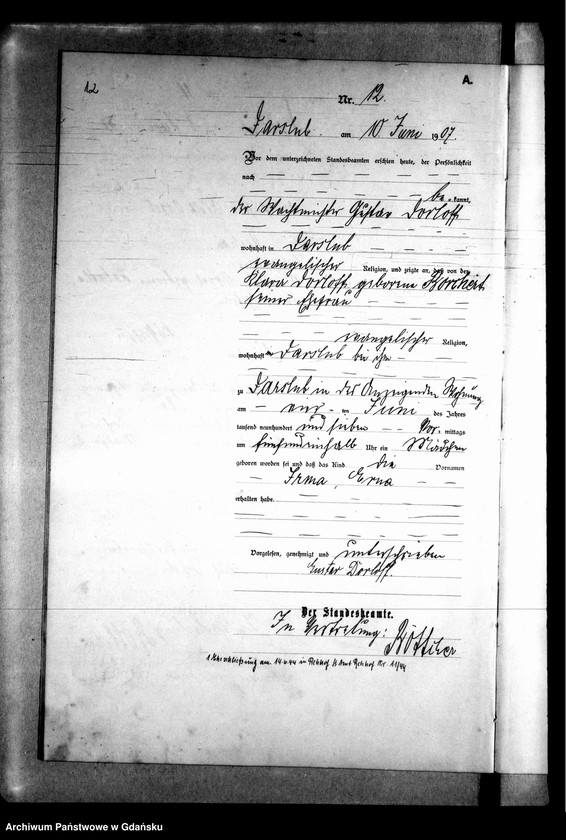 12
A.
Nr. 12.
Darslub am 10 Juni 1907.
Vor dem unterzeichneten Standesbeamten erschien heute, der Persönlichkeit
nach
be kannt,
der Wachtmeister Gustav Dorloff
wohnhaft in Darslub
evangelischer Religion, und zeigte an, daß von der
Klara Dorloff geborene
seiner Ehefrau
evangelischer Religion,
wohnhaft Darslub bei ihm
zu Darslub in des Anzeigenden Wohnung
am ten Juni des Jahres
tausend neunhundert und sieben Vor mittags
um fünfundeinhalb Uhr ein Mädchen
geboren worden sei und daß das Kind die Vornamen
Irma, Erna
erhalten habe.
Vorgelesen, genehmigt und unterschrieben
Gustav Dorloff.
Der Standesbeamte.
In Vertretung:
Böttcher
am 14.4.44 in Nr. 11/44
Archiwum Państwowe w Gdańsku